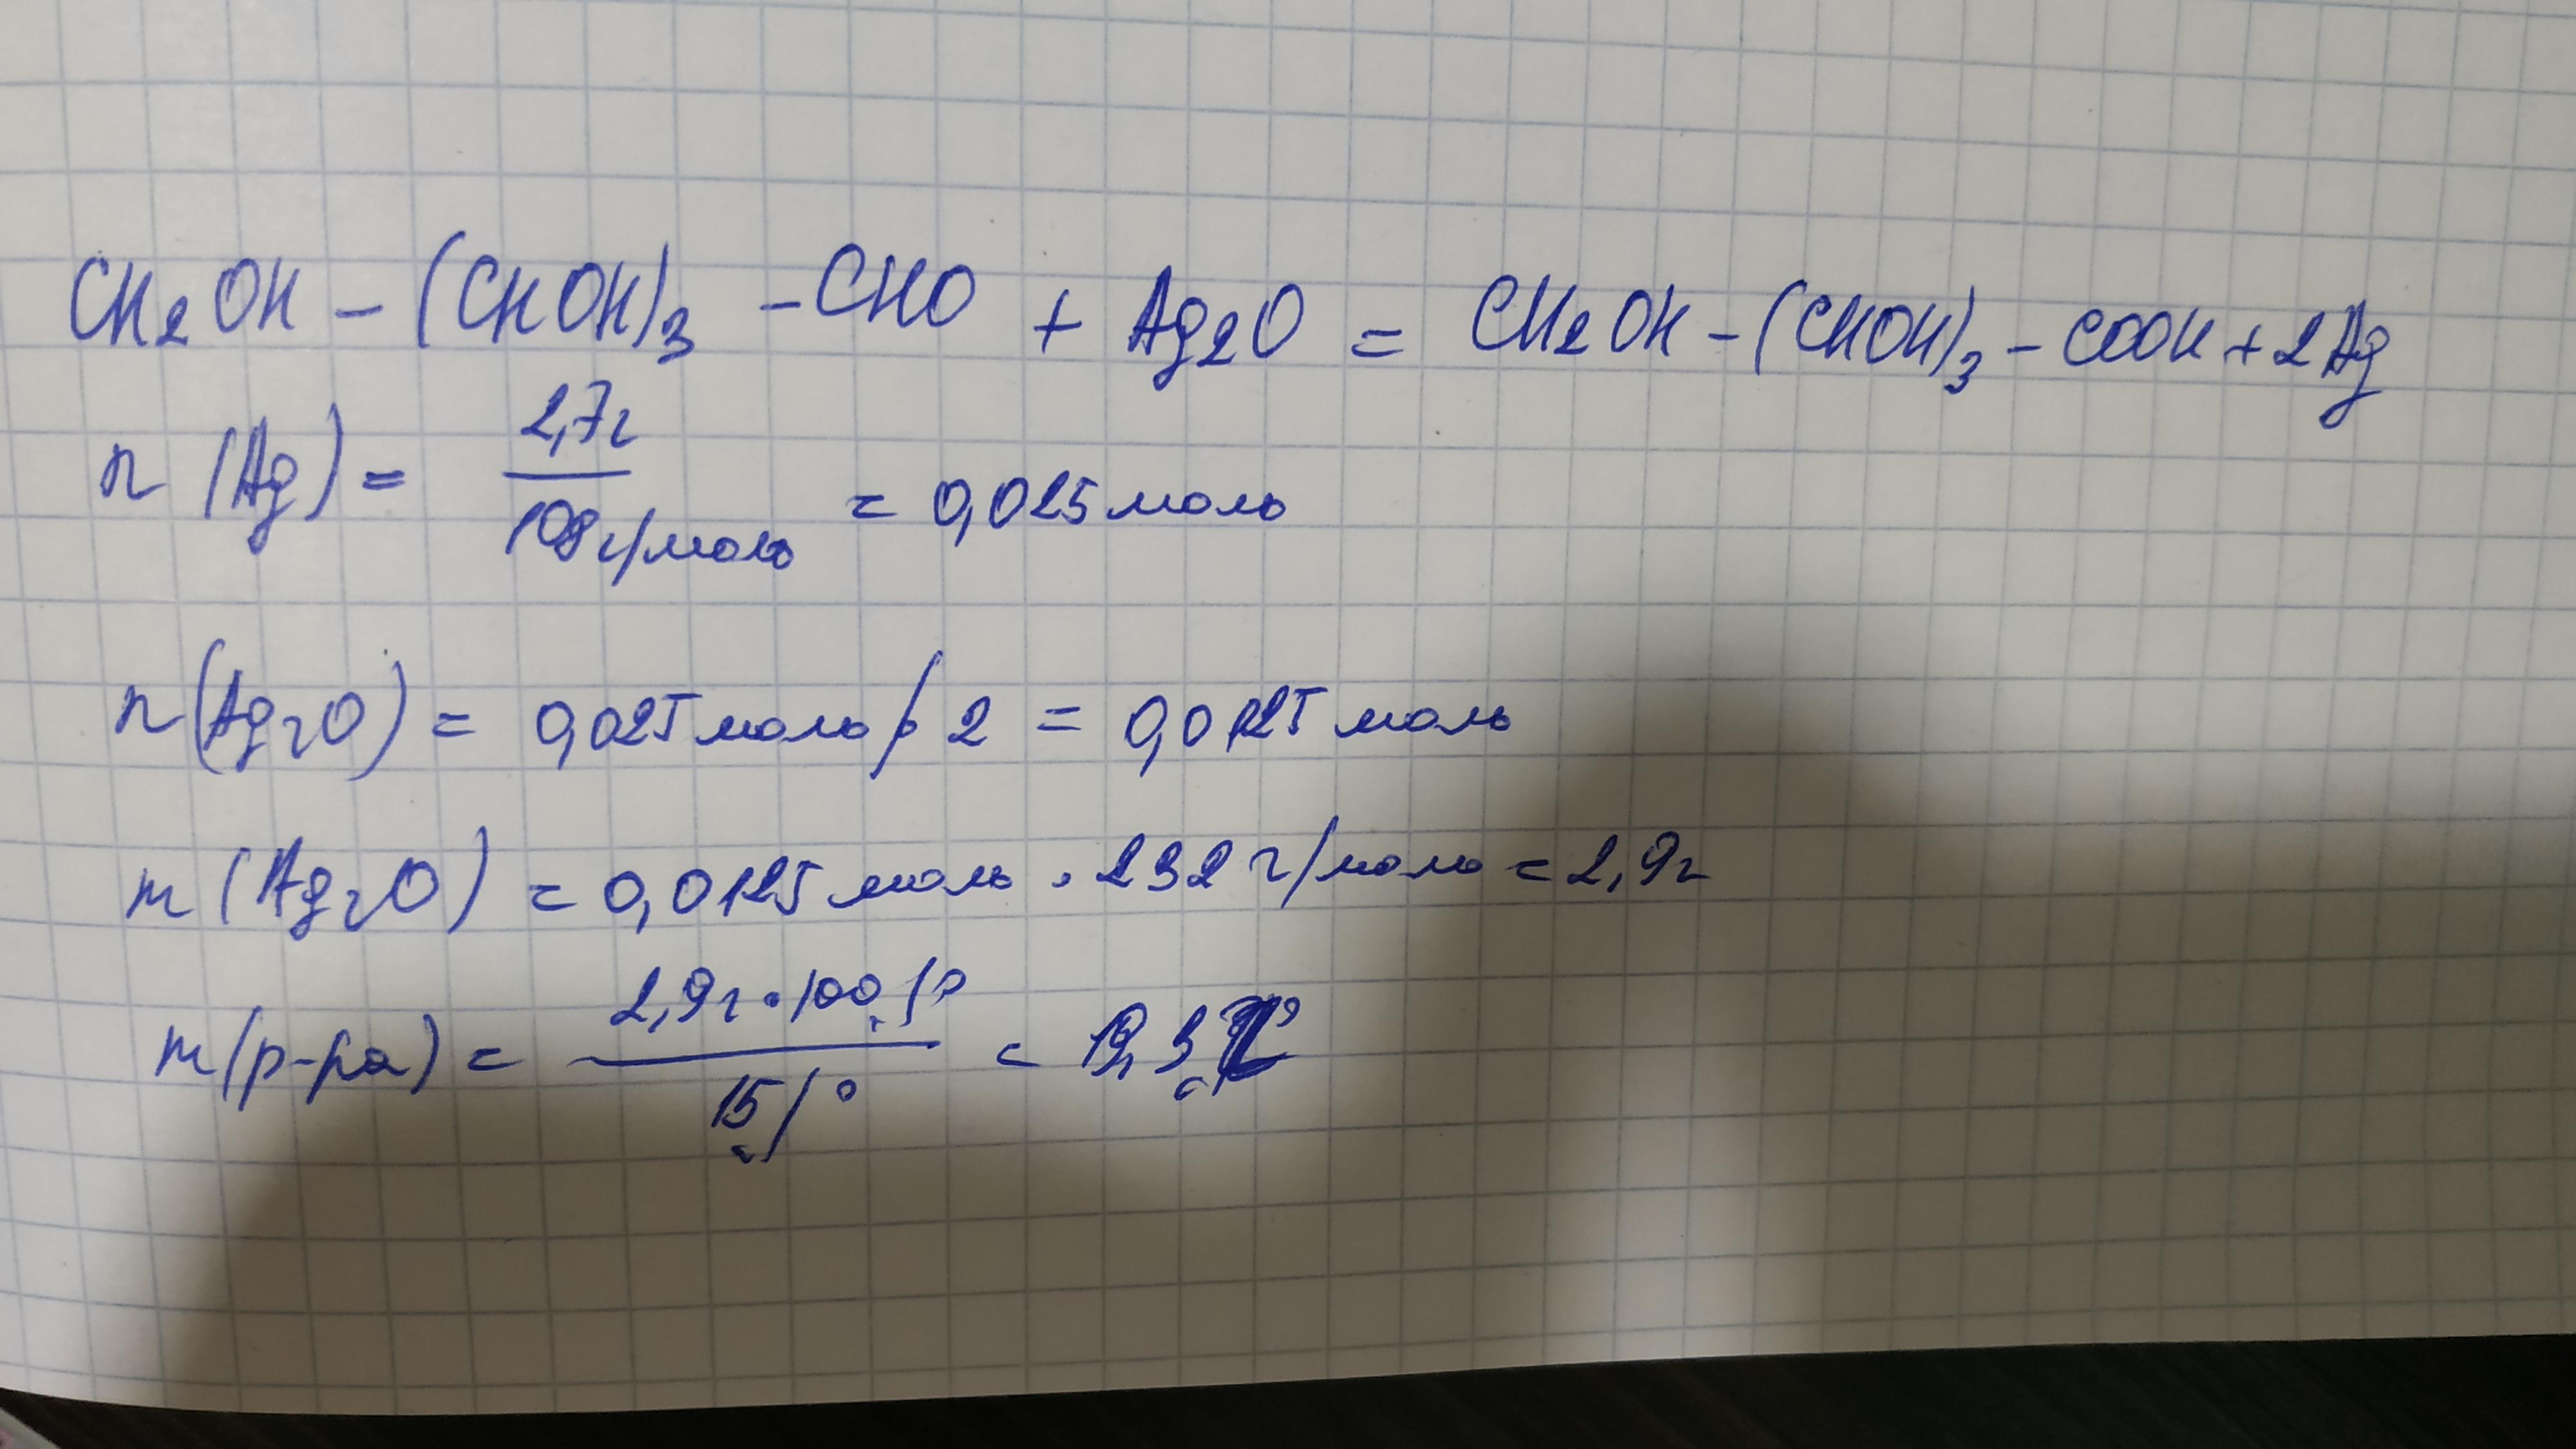 CH2OH – (CHOH)3 – CHO + Ag2O = CH2OH – (CHOH)3 – COOH + 2Ag
n (Ag) = 2,7г / 108г/моль = 0,025 моль
n(Ag2O) = 0,025 моль / 2 = 0,0125 моль
m (Ag2O) = 0,0125 моль · 232 г/моль = 2,9г
m(р-ра) = 2,9г · 100% / 15% = 19,3